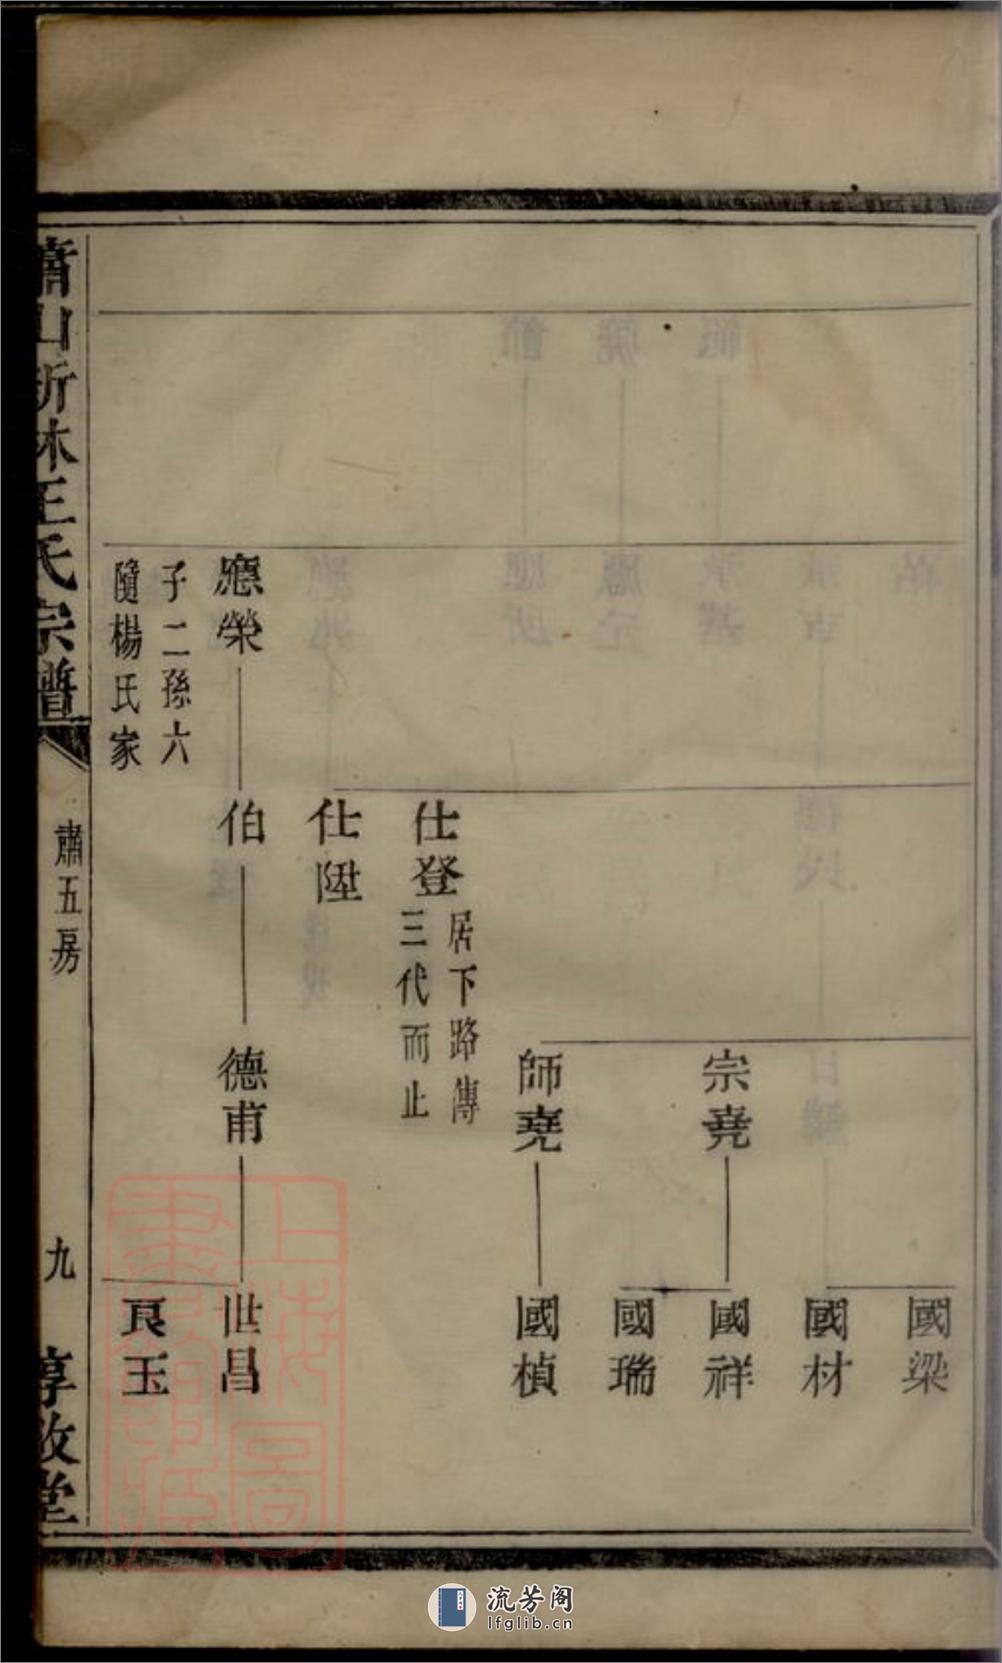 國梁
國材
宗堯
國祥
國瑞
師堯
國楨
仕登
居下路傳
三代而止
仕陞
應榮
子二孫六
隨楊氏家
伯
德甫
世昌
良玉
蕭山新林王氏宗譜
肅五房
九
惇敘堂
上海圖書館藏
流芳阁
lfglib.cn